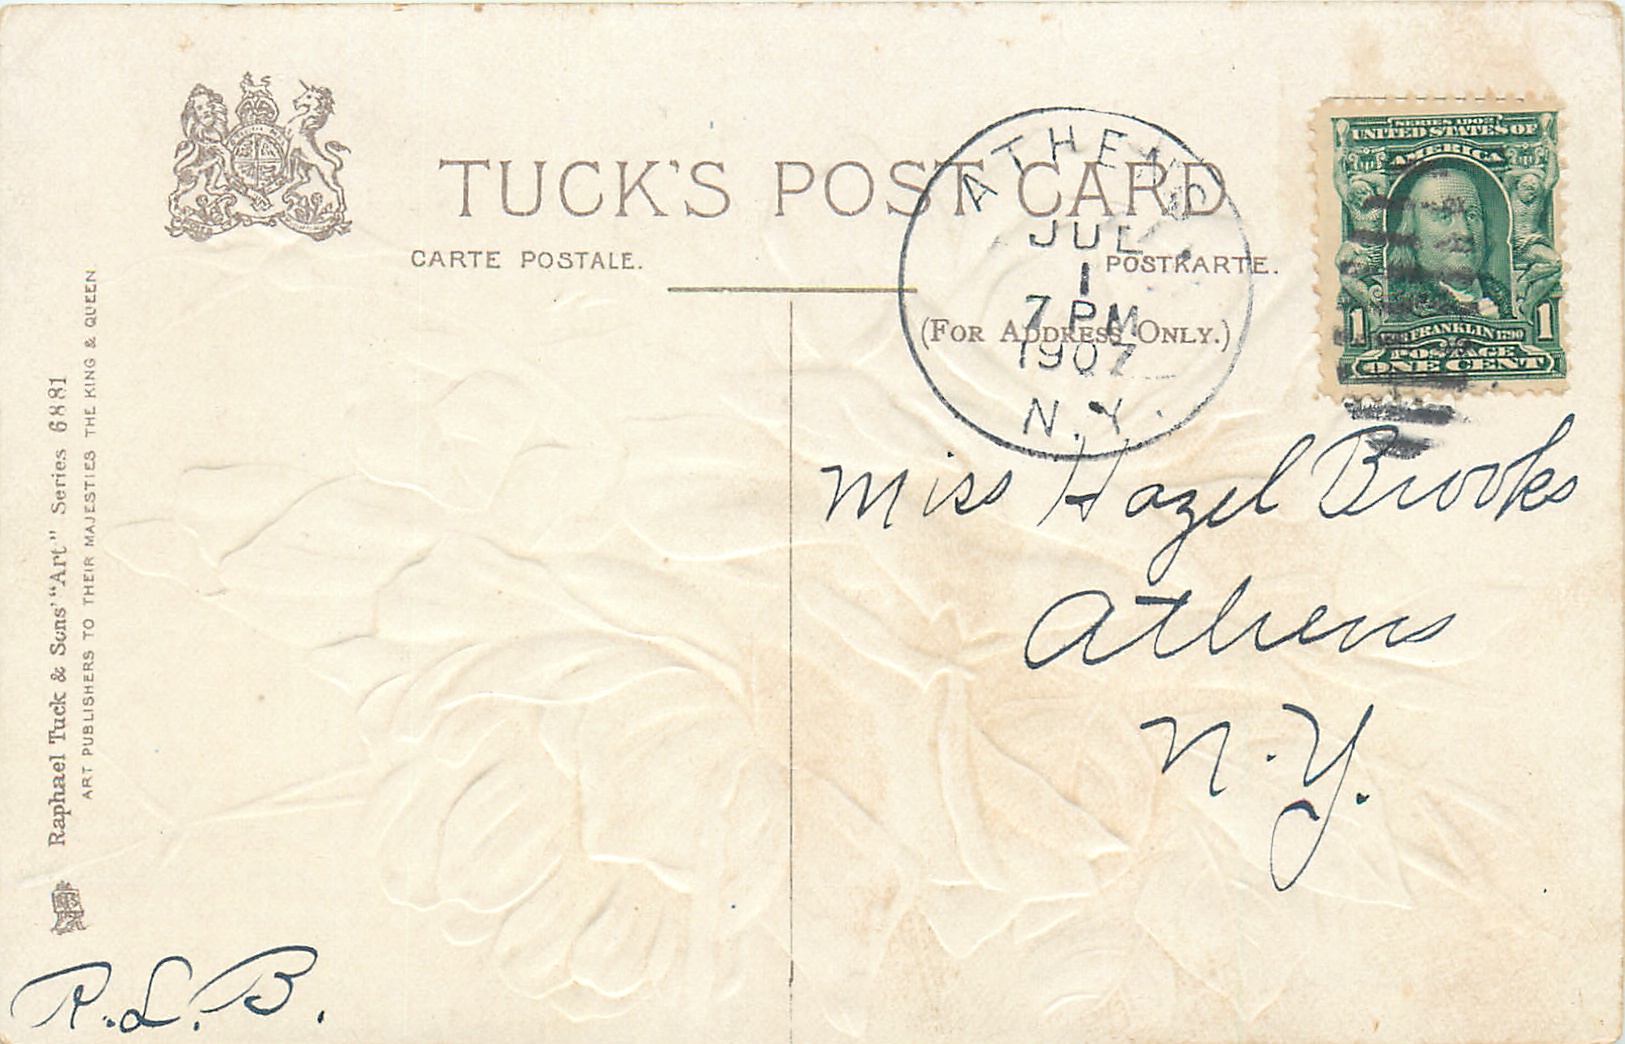 TUCK'S POST CARD
CARTE POSTALE.
POSTKARTE.
(FOR ADDRESS ONLY.)
ATHENS
JUL
1
7 PM
1907
N.Y.
SERIES 1902
UNITED STATES OF
AMERICA
1 FRANKLIN 1790 1
POSTAGE
ONE CENT
Raphael Tuck & Sons' "Art" Series 6881
ART PUBLISHERS TO THEIR MAJESTIES THE KING & QUEEN
Miss Hazel Brooks
Athens
N.Y.
R.L.B.